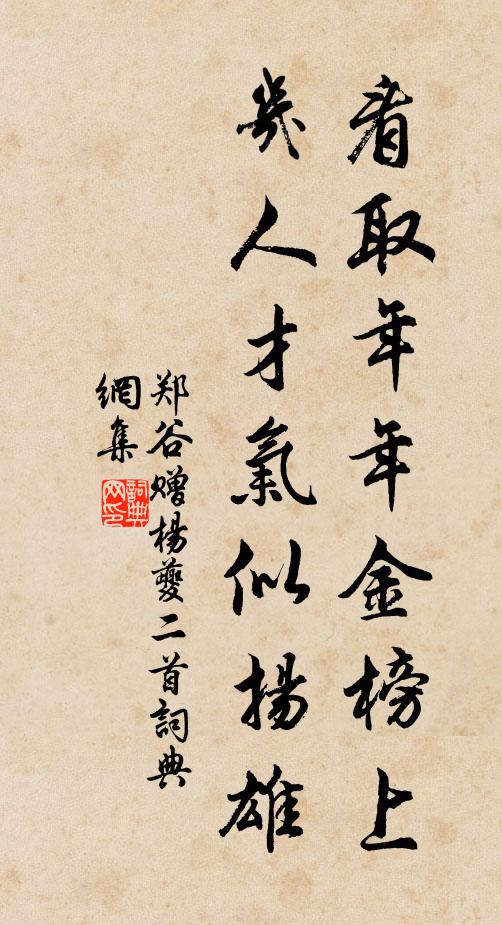 看取年年金榜上
幾人才氣似揚雄
郑谷赠楊夔二首詞典
網集
詞典
网印